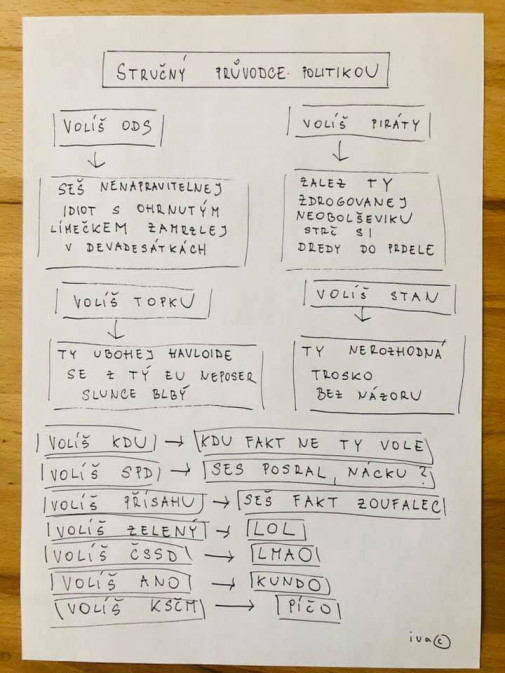 STRUČNÝ PRŮVODCE POLITIKOU
VOLÍŠ ODS
SEŠ NENAPRAVITELNEJ
IDIOT S OHRNUTÝM
LÍMEČKEM ZAMRZLEJ
V DEVADESÁTKÁCH
VOLÍŠ PIRÁTY
ZALEZ TY
ZDROGOVANEJ
NEOBOLŠEVIKU
STRČ SI
DREDY DO PRDELE
VOLÍŠ TOPKU
TY UBOHEJ HAVLOIDE
SE Z TÝ EU NEPOSER
SLUNCE BLBÝ
VOLÍŠ STAN
TY NEROZHODNÁ
TROSKO
BEZ NÁZORU
VOLÍŠ KDU → KDU FAKT NE TY VOLE
VOLÍŠ SPD → SES POSRAL, NÁCKU?
VOLÍŠ PŘÍSAHU → SEŠ FAKT ZOUFALEC
VOLÍŠ ZELENÝ → LOL
VOLÍŠ ČSSD → LMAO
VOLÍŠ ANO → KUNDO
VOLÍŠ KSČM → PÍČO
iva ©